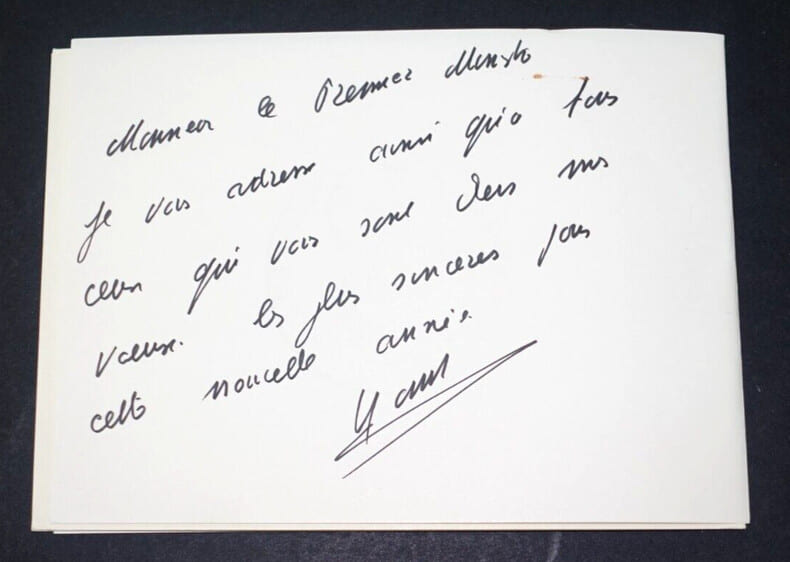 Monsieur le Premier Ministre
Je vous adresse ainsi qu'a tous
ceux qui vous sont chers mes
vœux les plus sincères pour
cette nouvelle année.